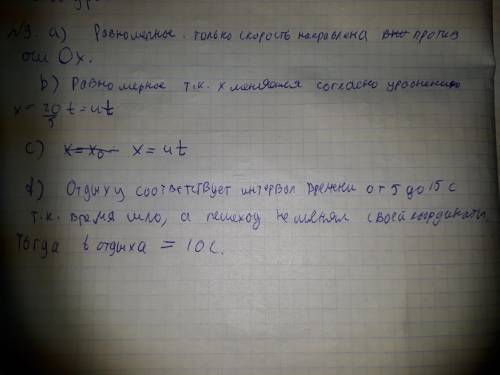 №9. a) Равномерное. только скорость направлена вни против
оси Ox.
b) Равномерное т.к. x меняется согласно уравнению
x = 20/5 t = 4t
c) x = x₀ x = 4t
d) Отдыху соответствует интервал времени от 5 до 15 с
т.к. время шло, а пешеход не менял своей координаты
Тогда t отдыха = 10 с.